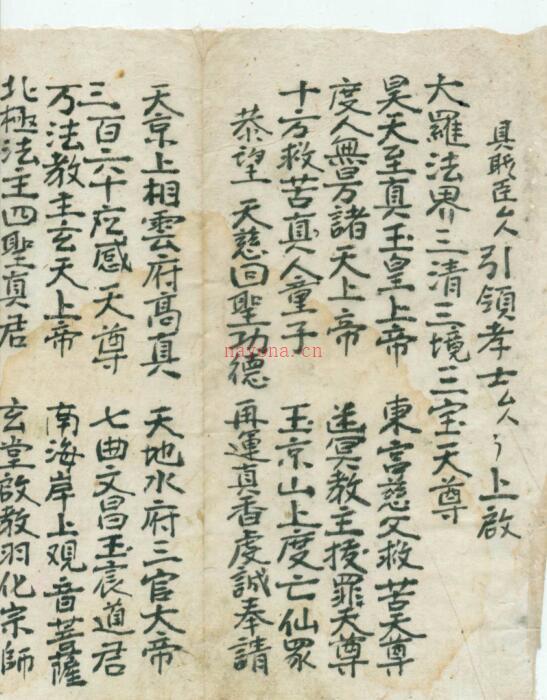 具職臣厶引領孝士厶〻上啟
大羅法界三清三境三宝天尊
昊天至真玉皇上帝 東宫慈父救苦天尊
度人無量諸天上帝 迷冥教主拔罪天尊
十方救苦真人童子 玉京山上度亡仙眾
恭望 天慈回聖功德 再運真香虔誠奉請
天京上相雲府高真 天地水府三官大帝
三百六十应感天尊 七曲文昌玉宸道君
万法教主玄天上帝 南海岸上观音菩薩
北極法主四聖真君 玄堂啟教羽化宗師
nayona.cn